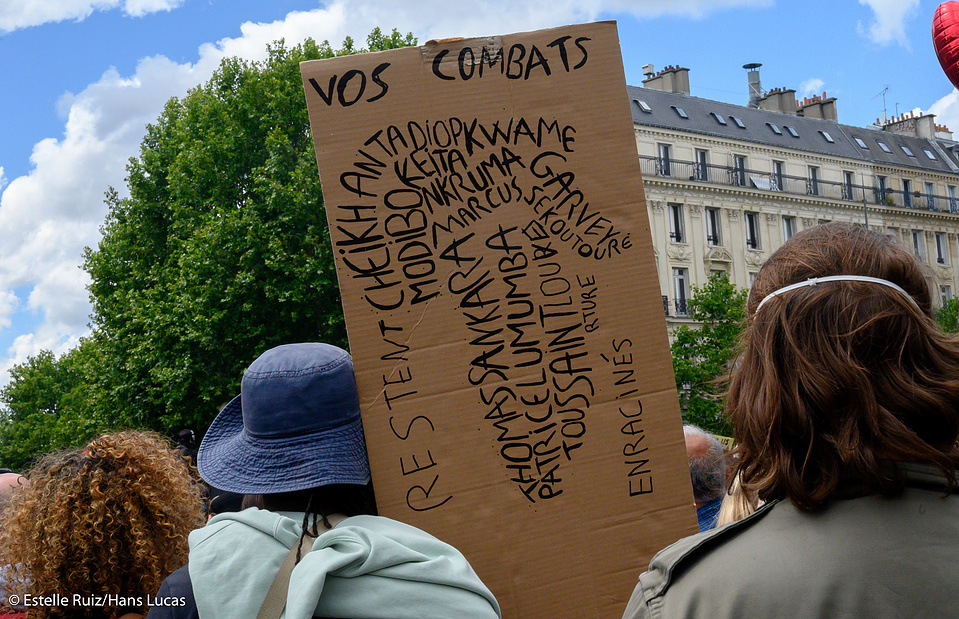 VOS COMBATS
CHEIKH ANTA DIOP KWAME
MODIBO KEITA NKRUMA GARVEY
MARCUS SEKOU TOURÉ
THOMAS SANKARA
PATRICE LUMUMBA
TOUSSAINT LOUXE
RTURE
RESTENT
ENRACINÉS
© Estelle Ruiz/Hans Lucas